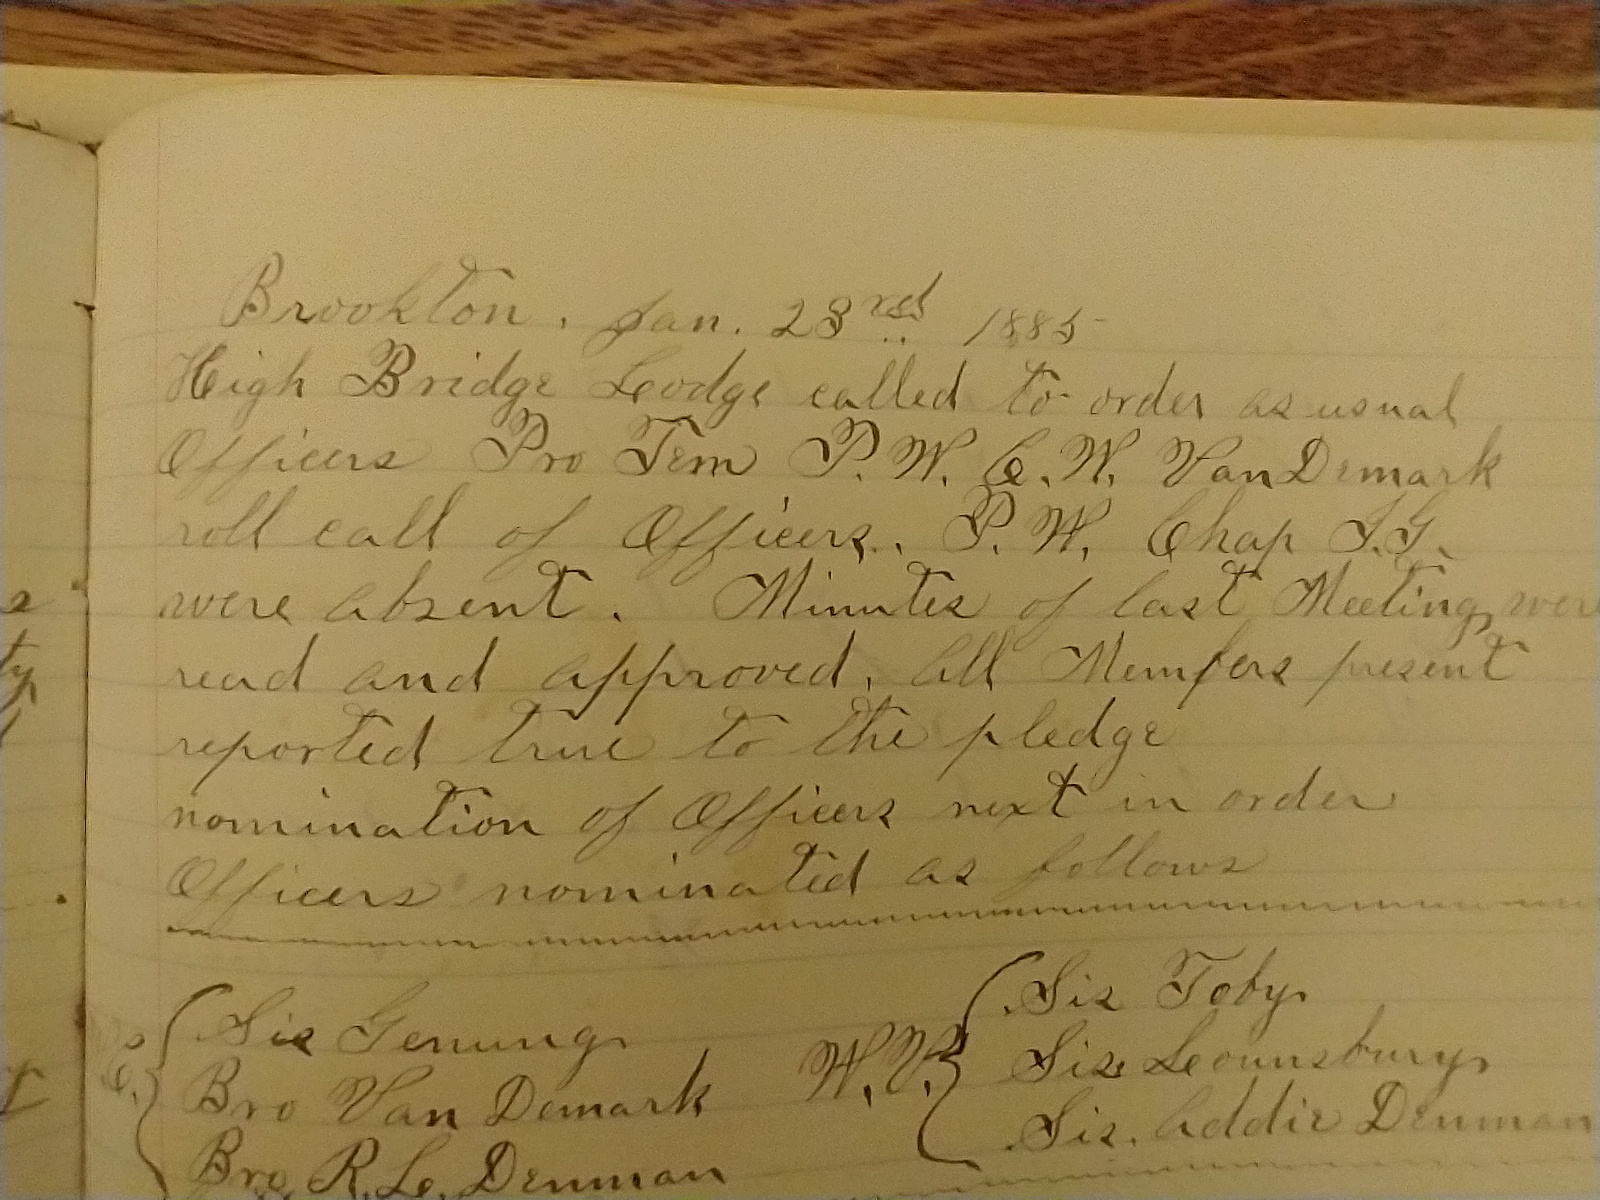 Brookton, Jan. 23rd, 1885
High Bridge Lodge called to order as usual
Officers Pro Tem P.W.C.T. W. VanDemark
roll call of Officers, P.W. Chap I.G.
were absent. Minutes of last Meeting, were
read and approved, all Members present
reported true to the pledge
nomination of Officers next in order
Officers nominated as follows
Sis Toby
Sis Genung W.V. Sis Lounsbury
Bro Van Demark Sis. Addie Denman
Bro. R. Lo. Denman